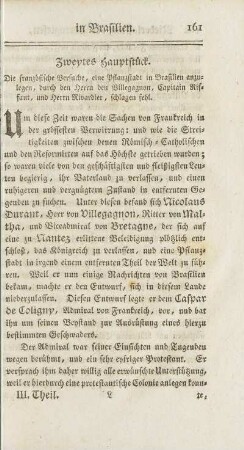 in Brasilien. 161
Zweytes Hauptstück.
Die französische Versuche, eine Pflanzstadt in Brasilien anzu-
legen, durch den Herrn von Villegagnon, Capitain Rif-
faut, und Herrn Rivardier, schlagen fehl.
Um diese Zeit waren die Sachen von Frankreich in
der grössesten Verwirrung: und wie die Strei-
tigkeiten zwischen denen Römisch-Catholischen
und den Reformirten auf das Höchste getrieben wurden;
so waren viele von den geschicktigsten und fleißigsten Leuten
begierig, ihr Vaterland zu verlassen, und einen
ruhigeren und vergnügten Zustand in entfernten Ge-
genden zu suchen. Unter diesen befand sich Nicolaus
Durant, Herr von Villegagnon, Ritter von Mal-
tha, und Viceadmiral von Bretagne, der sich auf eine
zu Nantez erlittene Beleidigung plötzlich ent-
schloß, das Königreich zu verlassen, und eine Pflanz-
stadt in irgend einem entfernten Theil der Welt zu füh-
ren. Weil er nun einige Nachrichten von Brasilien
bekam, machte er den Entwurf, sich in diesem Lande
niederzulassen. Diesen Entwurf legte er dem Caspar
de Coligny, Admiral von Frankreich, vor, und bat
ihn um seinen Beystand zur Ausrüstung eines hierzu
bestimmten Geschwaders.
Der Admiral war seiner Einsichten und Tugenden
wegen berühmt, und ein sehr eyfriger Protestant. Er
versprach ihm daher willig alle erwünschte Unterstützung,
weil er hierdurch eine protestantische Colonie anlegen konn-
III. Theil. L te,